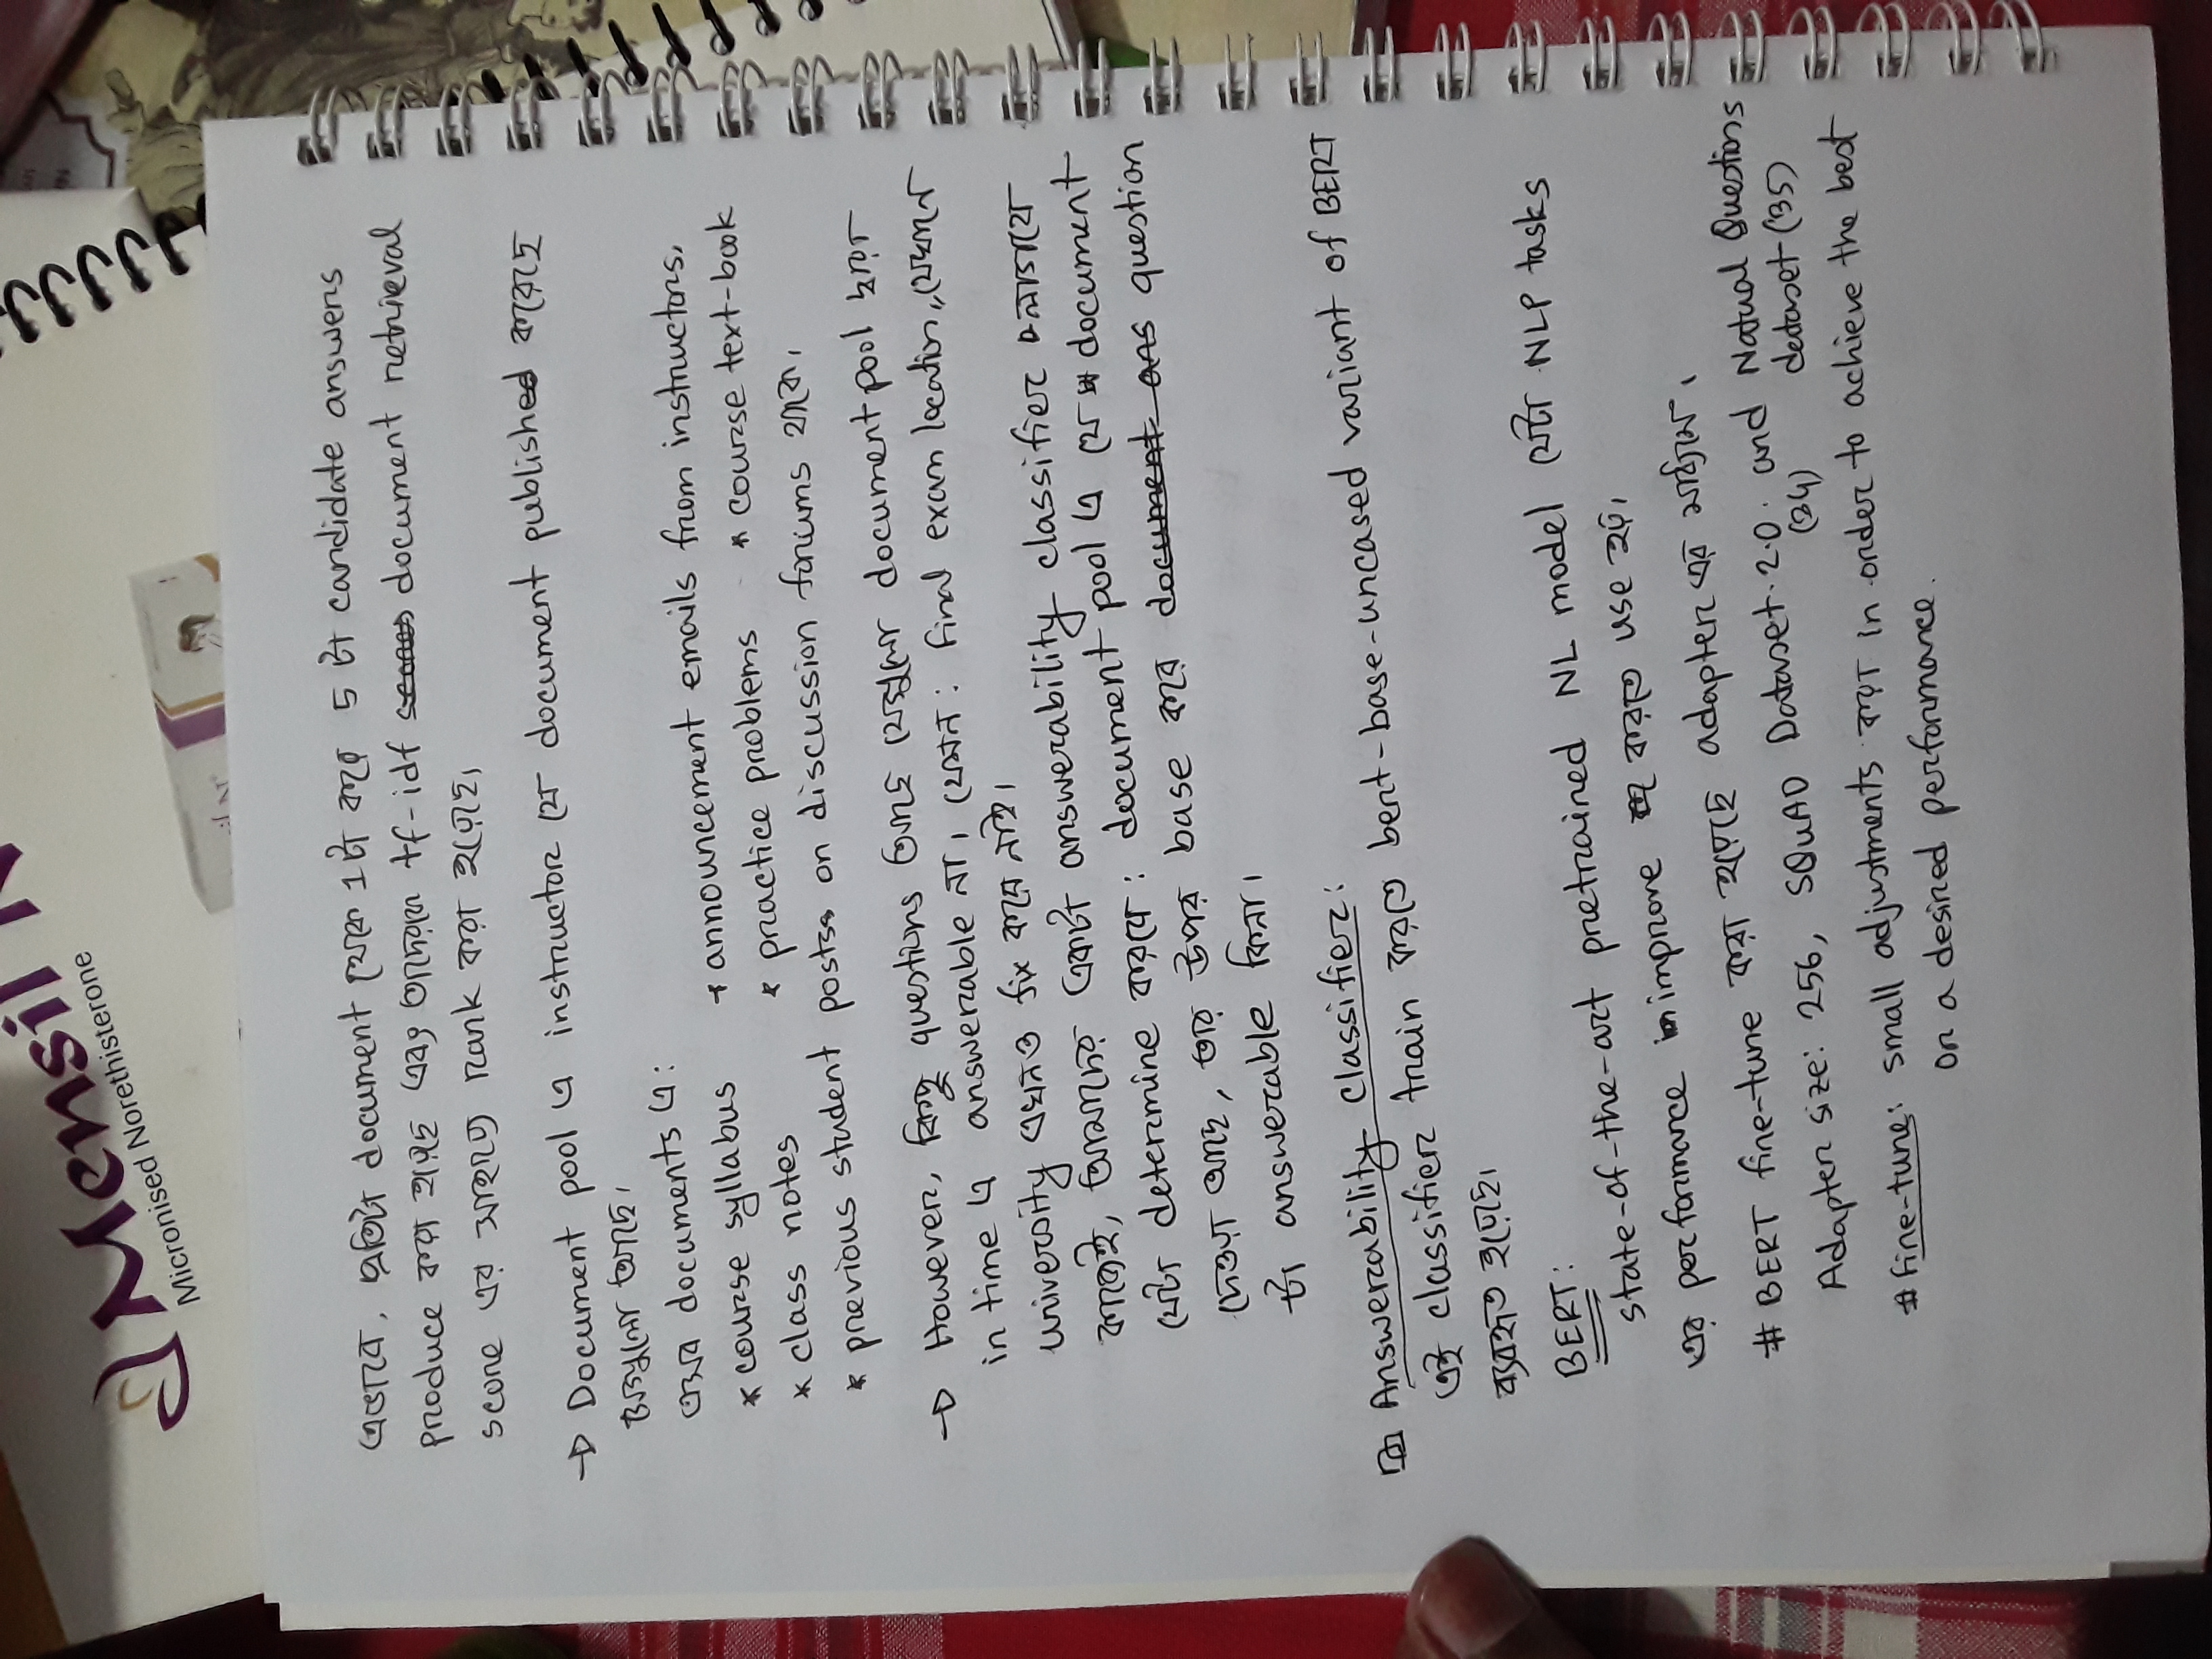 Mensil N
Micronised Norethisterone
এভাবে, প্রতিটা document থেকে 1টা করে 5 টা candidate answers
produce করা হয়েছে এবং তাদেরকে tf-idf document retrieval
score এর সাহায্যে rank করা হয়েছে।
→ Document pool এ instructor যে document published করেছে
ওগুলো আছে।
এসব documents এ:
* course syllabus * announcement emails from instructors,
* class notes * practice problems * course text-book
* previous student posts on discussion forums থাকে।
→ However, কিছু questions আছে যেগুলো document pool দ্বারা
in time এ answerable না। যেমন: final exam location, যেখানে
university এখনও fix করে নাই।
কাজেই, আমাদের একটা answerability classifier লাগবে
যেটা determine করবে: document pool এ যে document
দেওয়া আছে, তার উপর base করে question
টা answerable কিনা।
Answerability classifier:
এই classifier train করতে bert-base-uncased variant of BERT
ব্যবহৃত হয়েছে।
BERT:
state-of-the-art pretrained NL model যেটা NLP tasks
এর performance improve করতে use হয়।
# BERT fine-tune করা হয়েছে adapter এর মাধ্যমে।
Adapter size: 256, SQuAD Dataset 2.0. and Natual Questions
(34) dataset (35)
# fine-tune: small adjustments করা in order to achieve the best
on a desired performance.